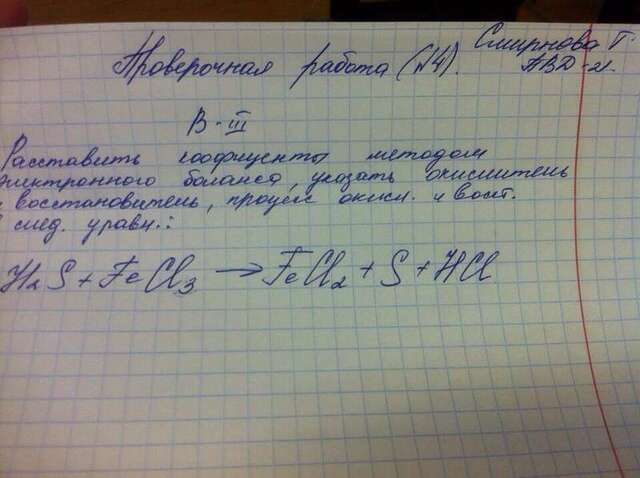 Смирнова Г.
Проверочная работа (№4). АВД-21.
В-III
Расставить коэфициенты методом
электронного баланса, указать окислитель
и восстановитель, процесс окисл. и восст.
в след. уравн.:
H₂S + FeCl₃ → FeCl₂ + S + HCl